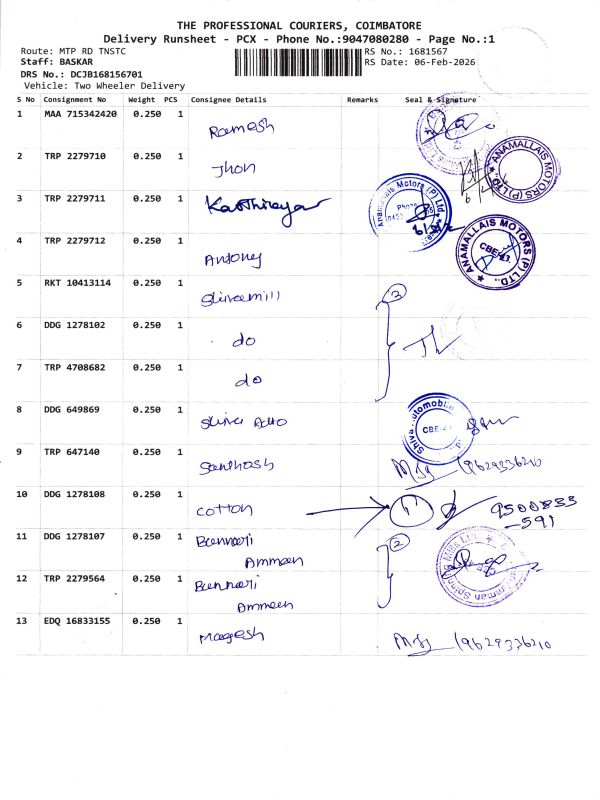 THE PROFESSIONAL COURIERS, COIMBATORE
Delivery Runsheet - PCX - Phone No.:9047080280 - Page No.:1
Route: MTP RD TNSTC RS No.: 1681567
Staff: BASKAR RS Date: 06-Feb-2026
DRS No.: DCJB168156701
Vehicle: Two Wheeler Delivery
S No Consignment No Weight PCS Consignee Details Remarks Seal & Signature
1 MAA 715342420 0.250 1 Ramesh
2 TRP 2279710 0.250 1 Jhon
ANAMALLAIS MOTORS (P) LTD.
3 TRP 2279711 0.250 1 Karthikeyan
Anamallais Motors (P) Ltd
Phone
4 TRP 2279712 0.250 1 Antony
ANAMALLAIS MOTORS (P) LTD.
CBE-11.
5 RKT 10413114 0.250 1
6 DDG 1278102 0.250 1 do
7 TRP 4708682 0.250 1 do
8 DDG 649869 0.250 1 Shiva Auto
Shiva Automobile
CBE-
9 TRP 647140 0.250 1 Santhosh
9629336210
10 DDG 1278108 0.250 1 cotton
9500833
-591
11 DDG 1278107 0.250 1 Bannari
Ammeen
2
12 TRP 2279564 0.250 1 Bannari
Ammeen
13 EDQ 16833155 0.250 1 Magesh
9629336210